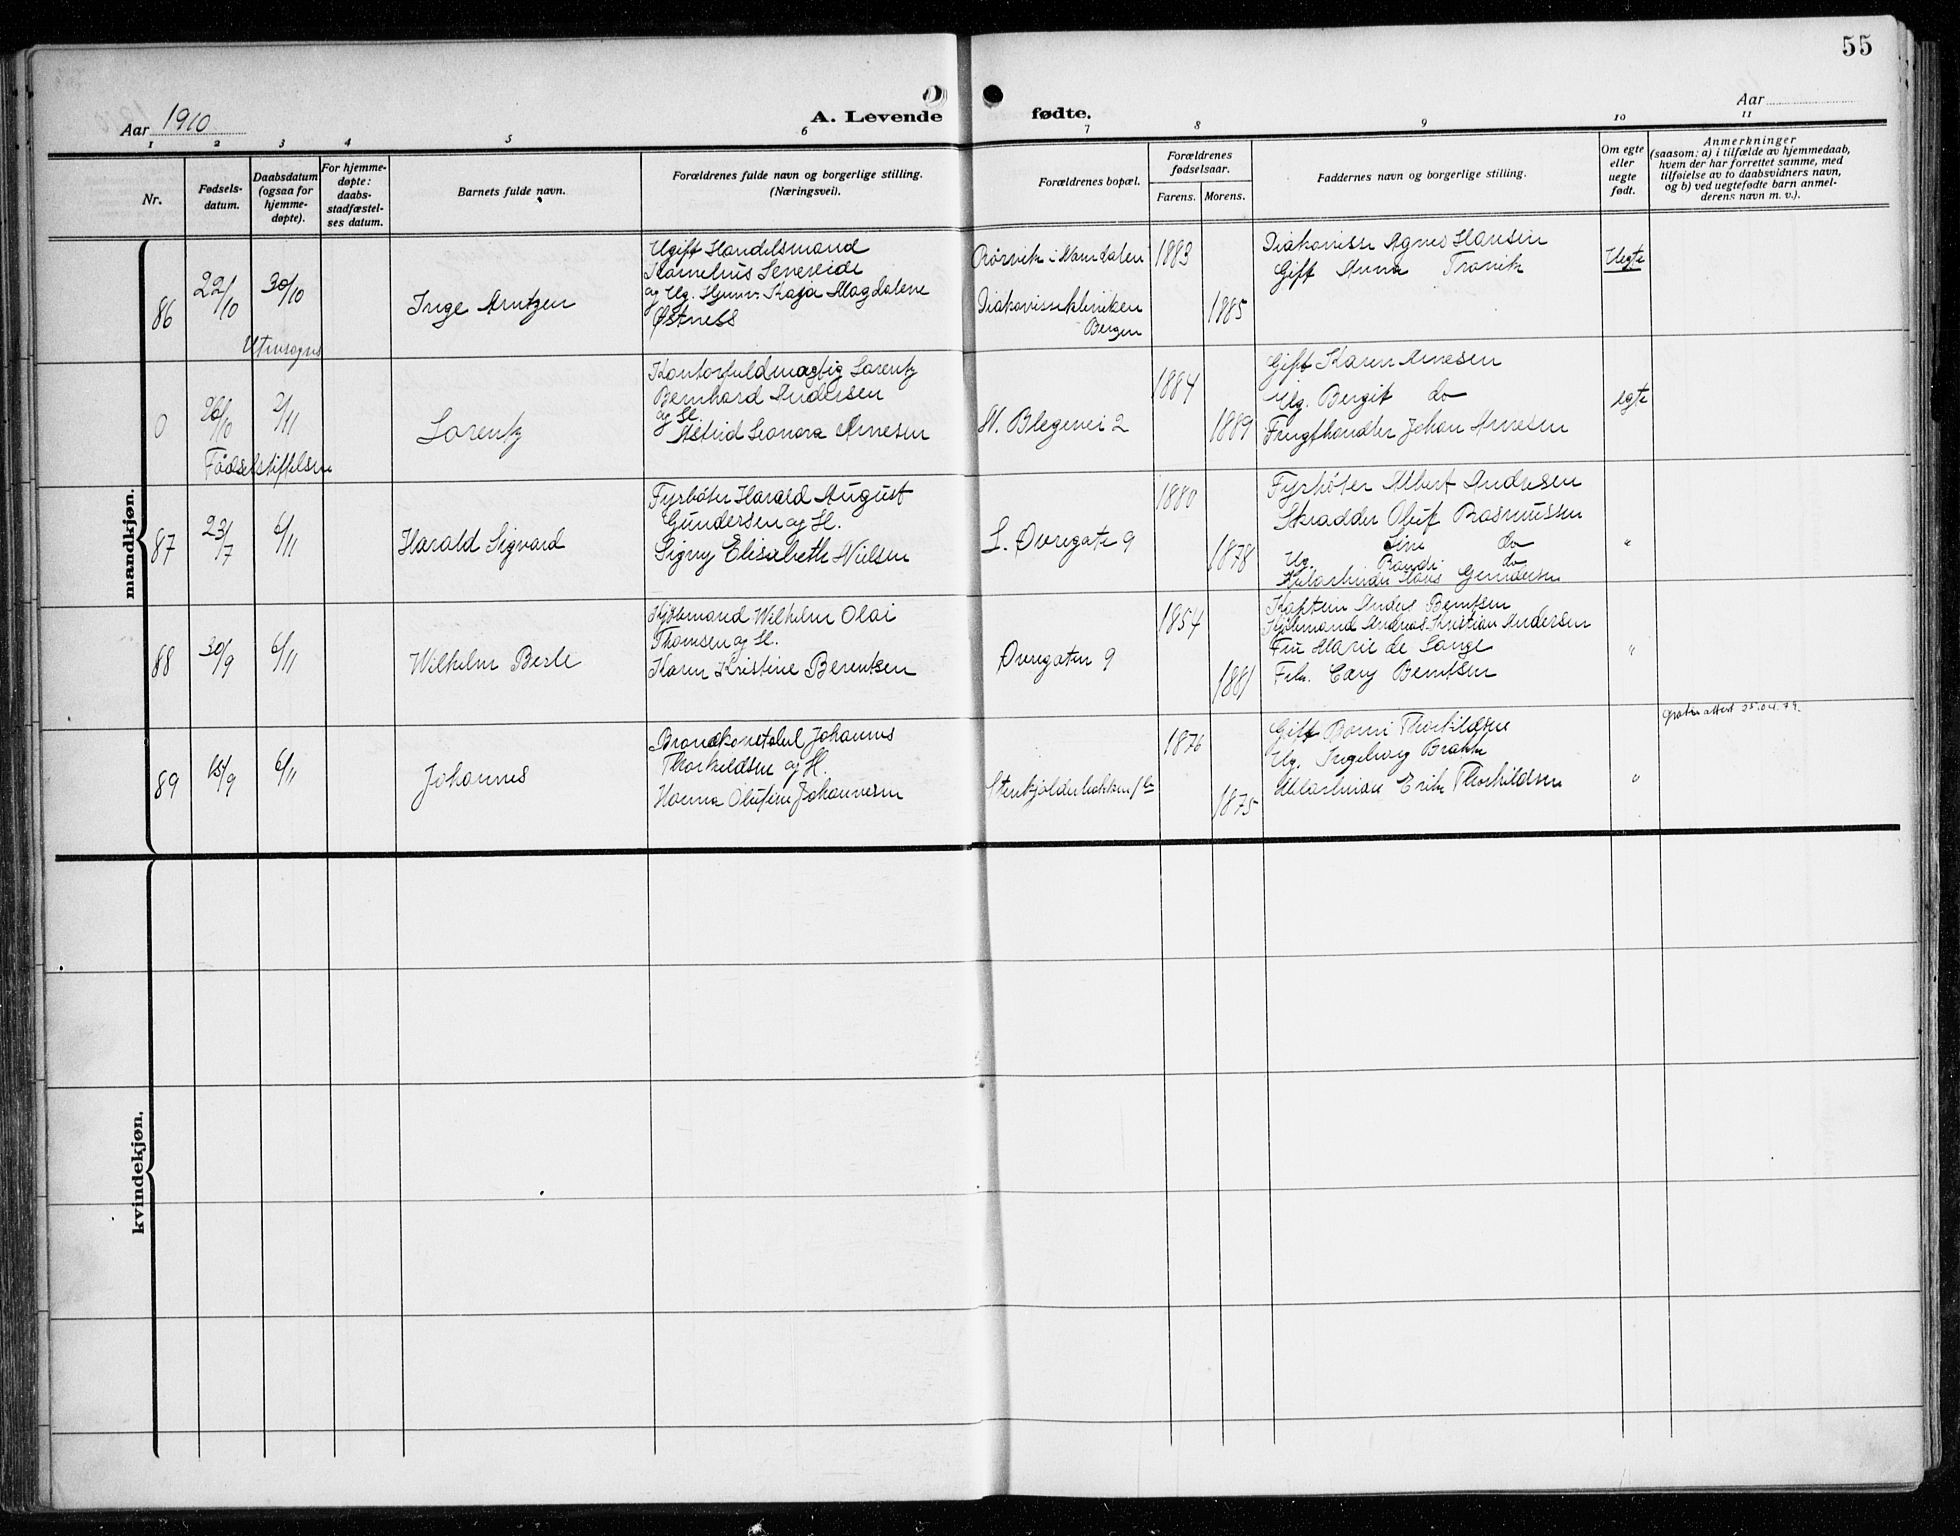 55
Aar 1910
A. Levende fødte.
Aar
1 2 3 4 5 6 7 8 9 10 11
Nr.
Fødsels-
datum.
Daabsdatum
(ogsaa for
hjemme-
døpte).
For hjemme-
døpte:
daabs-
stadfæstel-
ses datum.
Barnets fulde navn.
Forældrenes fulde navn og borgerlige stilling.
(Næringsvei).
Forældrenes bopæl.
Forældrenes
fødselsaar.
Farens. Morens.
Faddernes navn og borgerlige stilling.
Om egte
eller
uegte
født.
Anmerkninger
(saasom: a) i tilfælde av hjemmedaab,
hvem der har forrettet samme, med
tilføielse av to daabsvidners navn,
og b) ved uegtefødte barn anmel-
derens navn m. v.).
mandkjøn.
86
22/10
30/10
Utensogns
Inge Arntzen
Ugift Handelsmand
Kornelius Senereide
og Ug. Kaja Magdalene
Østness
Rörvik i Namdalen
Diakonisseklinikken
Bergen
1883
1885
Diakonisse Agnes Hansen
Gift Anna
Uegte
0
20/10
2/11
Fødselstiftelsen
Lorentz
Kontorfuldmægtig Lorentz
Bernhard Andersen
og H.
Astrid Leonora Arnesen
N. Blegevei 2
1884
1889
Gift Karen Arnesen
Ug. Bergit do
Frugthandler Johan Arnesen
egte
87
23/7
6/11
Harald Sigvard
Fyrbøter Harald August
Gundersen og H.
Signy Elisabeth Nielsen
L. Øvregate 9
1880
1878
Fyrbøter Albert Andersen
Skrædder Oluf Rasmussen
Line do
Ug. Randi do
Gundersen
"
88
30/9
6/11
Wilhelm Berle
Kjøbmand Wilhelm Olai
Thomsen og H.
Karen Kristine Berentsen
Øvregaten 9
1854
1881
Kaptein Berntsen
Kjøbmand Andreas Kristian Andersen
Fru Marie de Lange
Frk. Cary Berntsen
"
89
15/9
6/11
Johannes
Brandkonstabel Johannes
Thorkildsen og H.
Hanna Olufine Johannesen
1876
1875
Gift Thorkildsen
Ug. Ingeborg
Erik Thorkildsen
"
attest 25.04.79.
kvindekjøn.